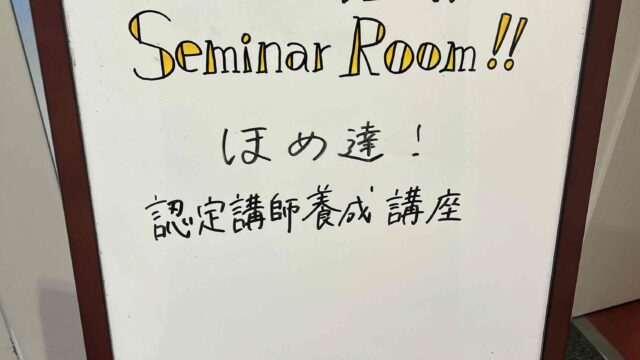 Seminar Room!!
ほめ達!
認定講師養成講座